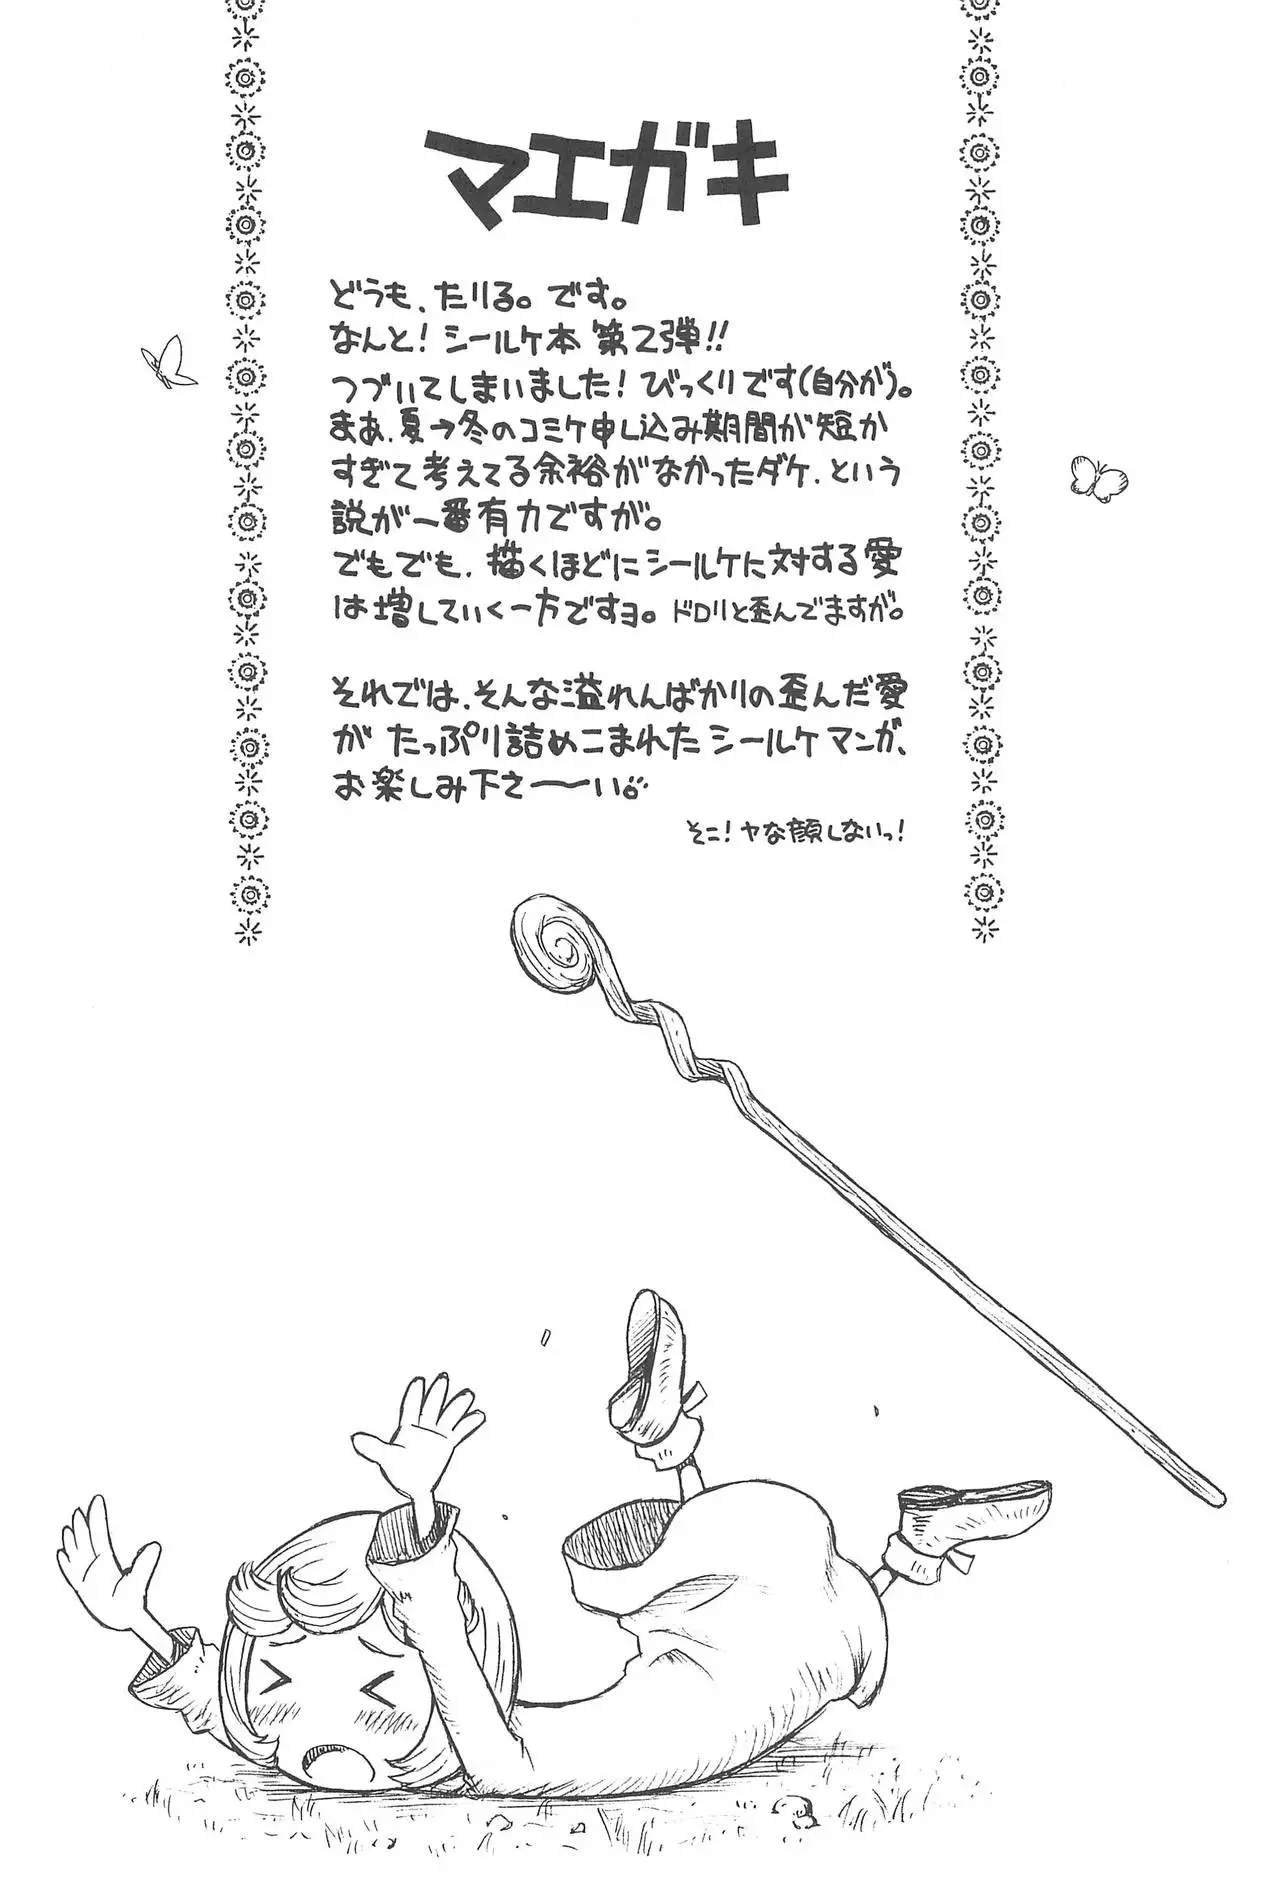 マエガキ
どうも、たりる。です。
なんと！シールケ本 第2弾！！
つづいてしまいました！びっくりです（自分が）。
まぁ、夏→冬のコミケ申し込み期間が短か
すぎて考えてる余裕がなかったダケ、という
説が一番有力ですが。
でもでも、描くほどにシールケに対する愛
は増していく一方ですヨ。ドロリと歪んでますが。
それでは、そんな溢れんばかりの歪んだ愛
が たっぷり詰めこまれたシールケマンガ、
お楽しみ下さ〜〜い。
そこ！ヤな顔しないっ！